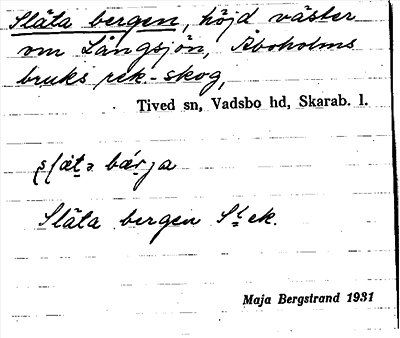 Släta bergen, höjd väster
om Långsjön, Åboholms
bruks rek.-skog,
Tived sn, Vadsbo hd, Skarab. l.
bær̩ja
Släta bergen Stek.
Maja Bergstrand 1931